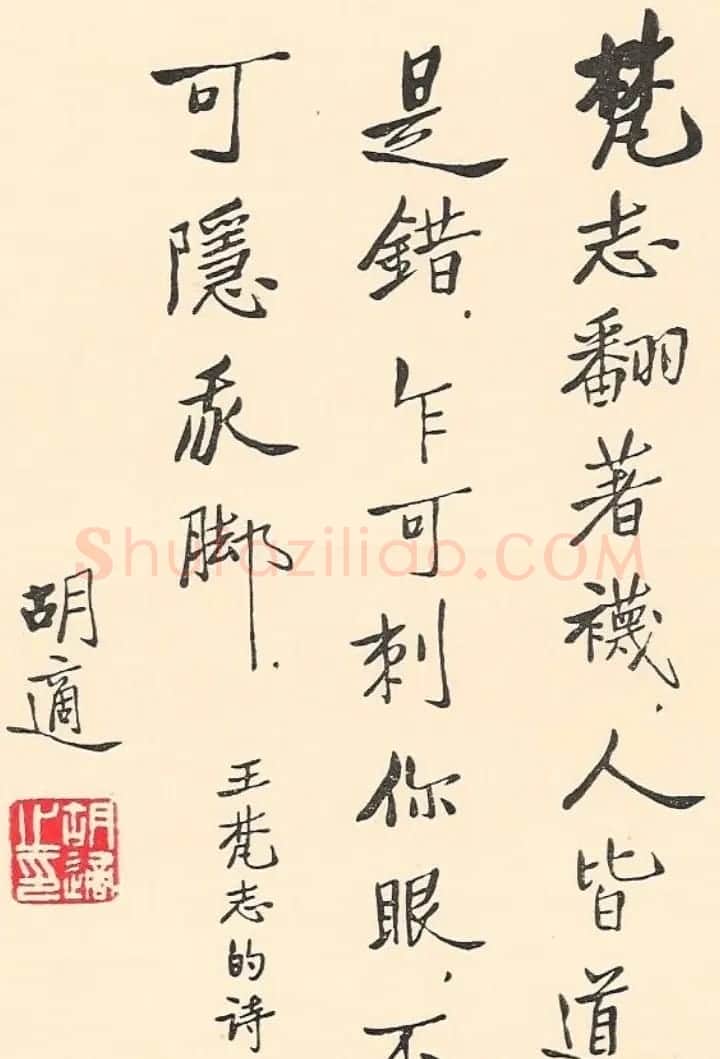 梵志翻著襪，人皆道
是錯．乍可刺你眼，不
可隱我脚．
王梵志的诗
胡適
胡適之印
Shufaziliao.COM